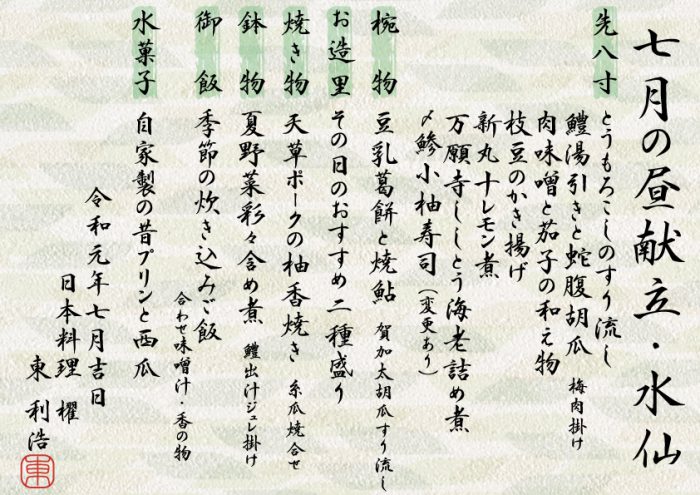 七月の昼献立・水仙
先八寸
とうもろこしのすり流し
鱧湯引きと蛇腹胡瓜 梅肉掛け
肉味噌と茄子の和え物
枝豆のかき揚げ
新丸十レモン煮
万願寺ししとう海老詰め煮
〆鯵小袖寿司(変更あり)
椀物 豆乳葛餅と焼鮎 賀加太胡瓜すり流し
お造里 その日のおすすめ二種盛り
焼き物 天草ポークの柚香焼き 糸瓜焼合せ
鉢物 夏野菜彩々含め煮 鱧出汁ジュレ掛け
御飯 季節の炊き込みご飯
合わせ味噌汁・香の物
水菓子 自家製の昔プリンと西瓜
令和元年七月吉日
日本料理 櫂
東 利浩
東